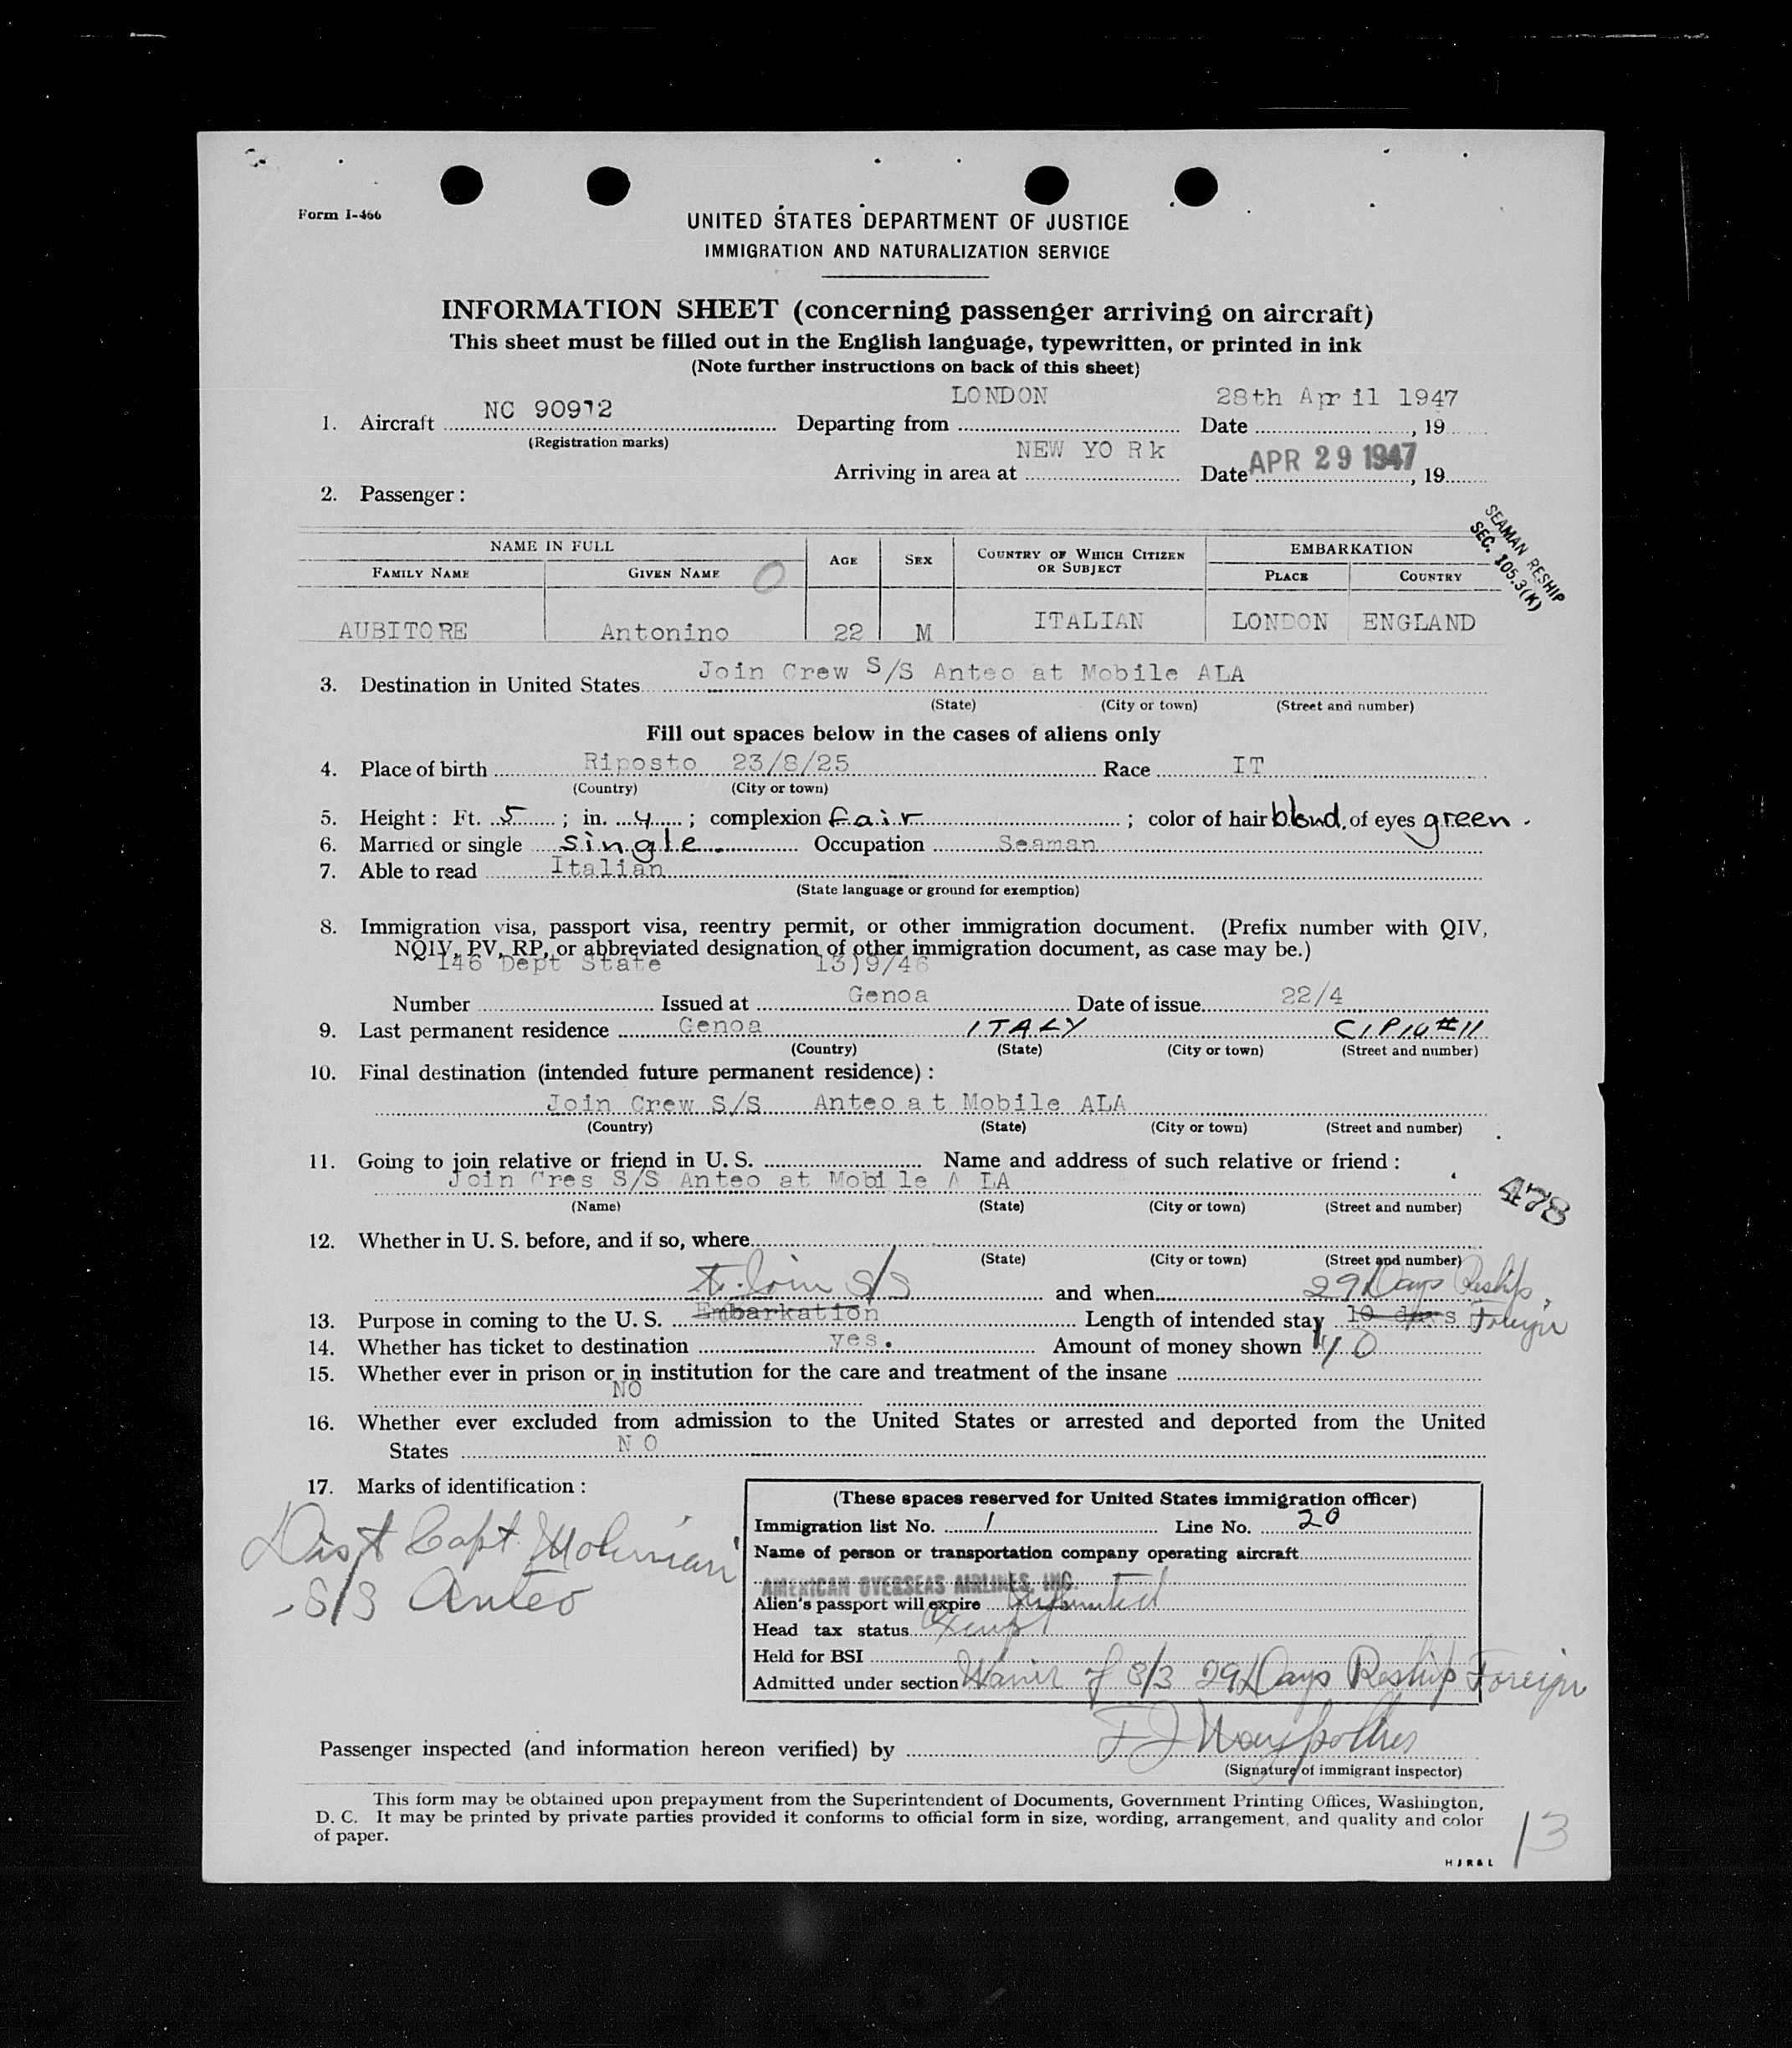 Form I-466
UNITED STATES DEPARTMENT OF JUSTICE
IMMIGRATION AND NATURALIZATION SERVICE
INFORMATION SHEET (concerning passenger arriving on aircraft)
This sheet must be filled out in the English language, typewritten, or printed in ink
(Note further instructions on back of this sheet)
1. Aircraft NC 90912 Departing from LONDON Date 28th April 1947, 19
(Registration marks)
Arriving in area at NEW YORk Date APR 29 1947, 19
2. Passenger:
SEAMAN RESHIP
SEC. 105.3(K)
NAME IN FULL AGE SEX COUNTRY OF WHICH CITIZEN OR SUBJECT EMBARKATION
FAMILY NAME GIVEN NAME PLACE COUNTRY
AUBITORE Antonino 22 M ITALIAN LONDON ENGLAND
3. Destination in United States Join Crew S/S Anteo at Mobile ALA
(State) (City or town) (Street and number)
Fill out spaces below in the cases of aliens only
4. Place of birth Riposto 23/8/25 Race IT
(Country) (City or town)
5. Height: Ft. 5; in. 4; complexion fair; color of hair blond, of eyes green.
6. Married or single single. Occupation Seaman
7. Able to read Italian
(State language or ground for exemption)
8. Immigration visa, passport visa, reentry permit, or other immigration document. (Prefix number with QIV,
NQIV, PV, RP, or abbreviated designation of other immigration document, as case may be.)
146 Dept State 13)9/46
Number Issued at Genoa Date of issue 22/4
9. Last permanent residence Genoa ITALY C.I.P.I.U #11
(Country) (State) (City or town) (Street and number)
10. Final destination (intended future permanent residence):
Join Crew S/S Anteo at Mobile ALA
(Country) (State) (City or town) (Street and number)
11. Going to join relative or friend in U. S. Name and address of such relative or friend:
Join Cres S/S Anteo at Mobile A LA
(Name) (State) (City or town) (Street and number)
478
12. Whether in U. S. before, and if so, where
(State) (City or town) (Street and number)
to Join S/S and when 29 Days Reship
13. Purpose in coming to the U. S. Embarkation Length of intended stay 10 days Foreign
14. Whether has ticket to destination yes. Amount of money shown 40
15. Whether ever in prison or in institution for the care and treatment of the insane
NO
16. Whether ever excluded from admission to the United States or arrested and deported from the United
States NO
17. Marks of identification:
Dist Capt.
S/S Anteo
(These spaces reserved for United States immigration officer)
Immigration list No. 1 Line No. 20
Name of person or transportation company operating aircraft
AMERICAN OVERSEAS AIRLINES, INC
Alien's passport will expire Unlimited
Head tax status Exempt
Held for BSI
Admitted under section Waiver of 8/3 29 Days Reship Foreign
Passenger inspected (and information hereon verified) by
(Signature of immigrant inspector)
This form may be obtained upon prepayment from the Superintendent of Documents, Government Printing Offices, Washington,
D. C. It may be printed by private parties provided it conforms to official form in size, wording, arrangement, and quality and color
of paper.
H J R & L
13